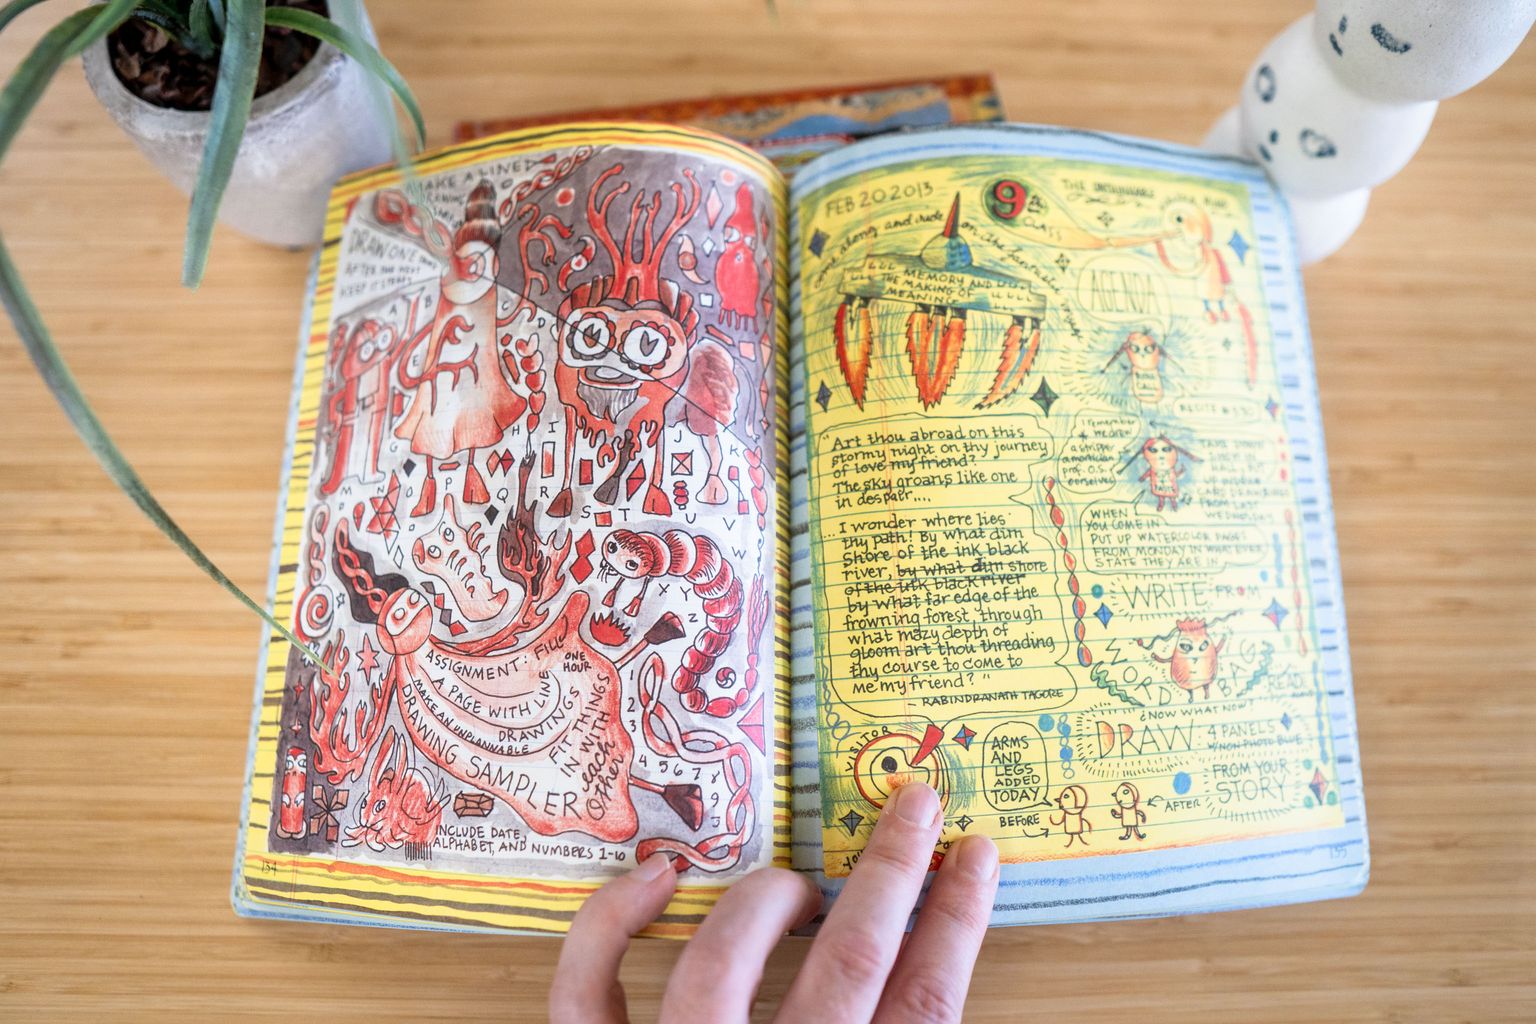 MAKE A LINED
DRAWING
DRAW ONE
KEEP IT
A B C D E
G H I J K
M N O P Q R S T U V W
X Y Z
ASSIGNMENT: FILL
ONE HOUR
A PAGE WITH LINE
DRAWINGS
MAKE AN UNPLANNABLE
FIT THINGS
IN WITH
each
Other
DRAWING SAMPLER
1 2 3 4 5 6 7 8 9
INCLUDE DATE,
ALPHABET, AND NUMBERS 1-10
154
FEB 20 2013
9
CLASS
come along and ride on the fantastic
MEMORY AND
THE MAKING OF
MEANING
AGENDA
"Art thou abroad on this
stormy night on thy journey
of love my friend?
The sky groans like one
in despair....
...I wonder where lies
thy path! By what dim
shore of the ink black
river, by what dim shore
of the ink black river
by what far edge of the
frowning forest through
what mazy depth of
gloom art thou threading
thy course to come to
me my friend?"
- RABINDRANATH TAGORE
I remember
prof. O.S.
ourselves
WHEN
YOU COME IN
PUT UP WATERCOLOR PAGES
FROM MONDAY IN WHAT EVER
STATE THEY ARE IN
WRITE FROM
WORD BAG
READ
¿NOW WHAT NOW?
DRAW 4 PANELS
W/NON PHOTO BLUE
FROM YOUR
STORY
VISITOR
ARMS
AND
LEGS
ADDED
TODAY
BEFORE
AFTER
155